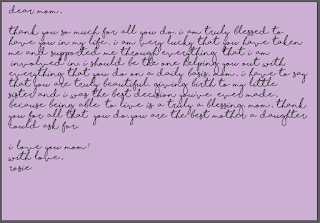 dear mom,
thank you so much for all you do. i am truly blessed to
have you in my life. i am very lucky that you have taken
me and supported me through everything that i am
involved in. i should be the one helping you out with
everything that you do on a daily basis. mom, i have to say
that you are truly beautiful. giving birth to my little
sister and i was the best decision you've ever made.
because being able to live is a truly a blessing mom. thank
you for all that you do.you are the best mother a daughter
could ask for.
i love you mom!
with love,
rosie